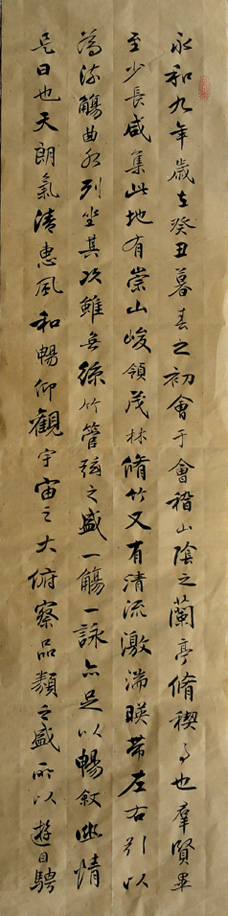 永和九年歲在癸丑暮春之初會于會稽山陰之蘭亭脩稧事也羣賢畢
至少長咸集此地有崇山峻領茂林脩竹又有清流激湍暎帶左右引以
為流觴曲水列坐其次雖無絲竹管弦之盛一觴一詠亦足以暢敘幽情
是日也天朗氣清惠風和暢仰觀宇宙之大俯察品類之盛所以遊目騁